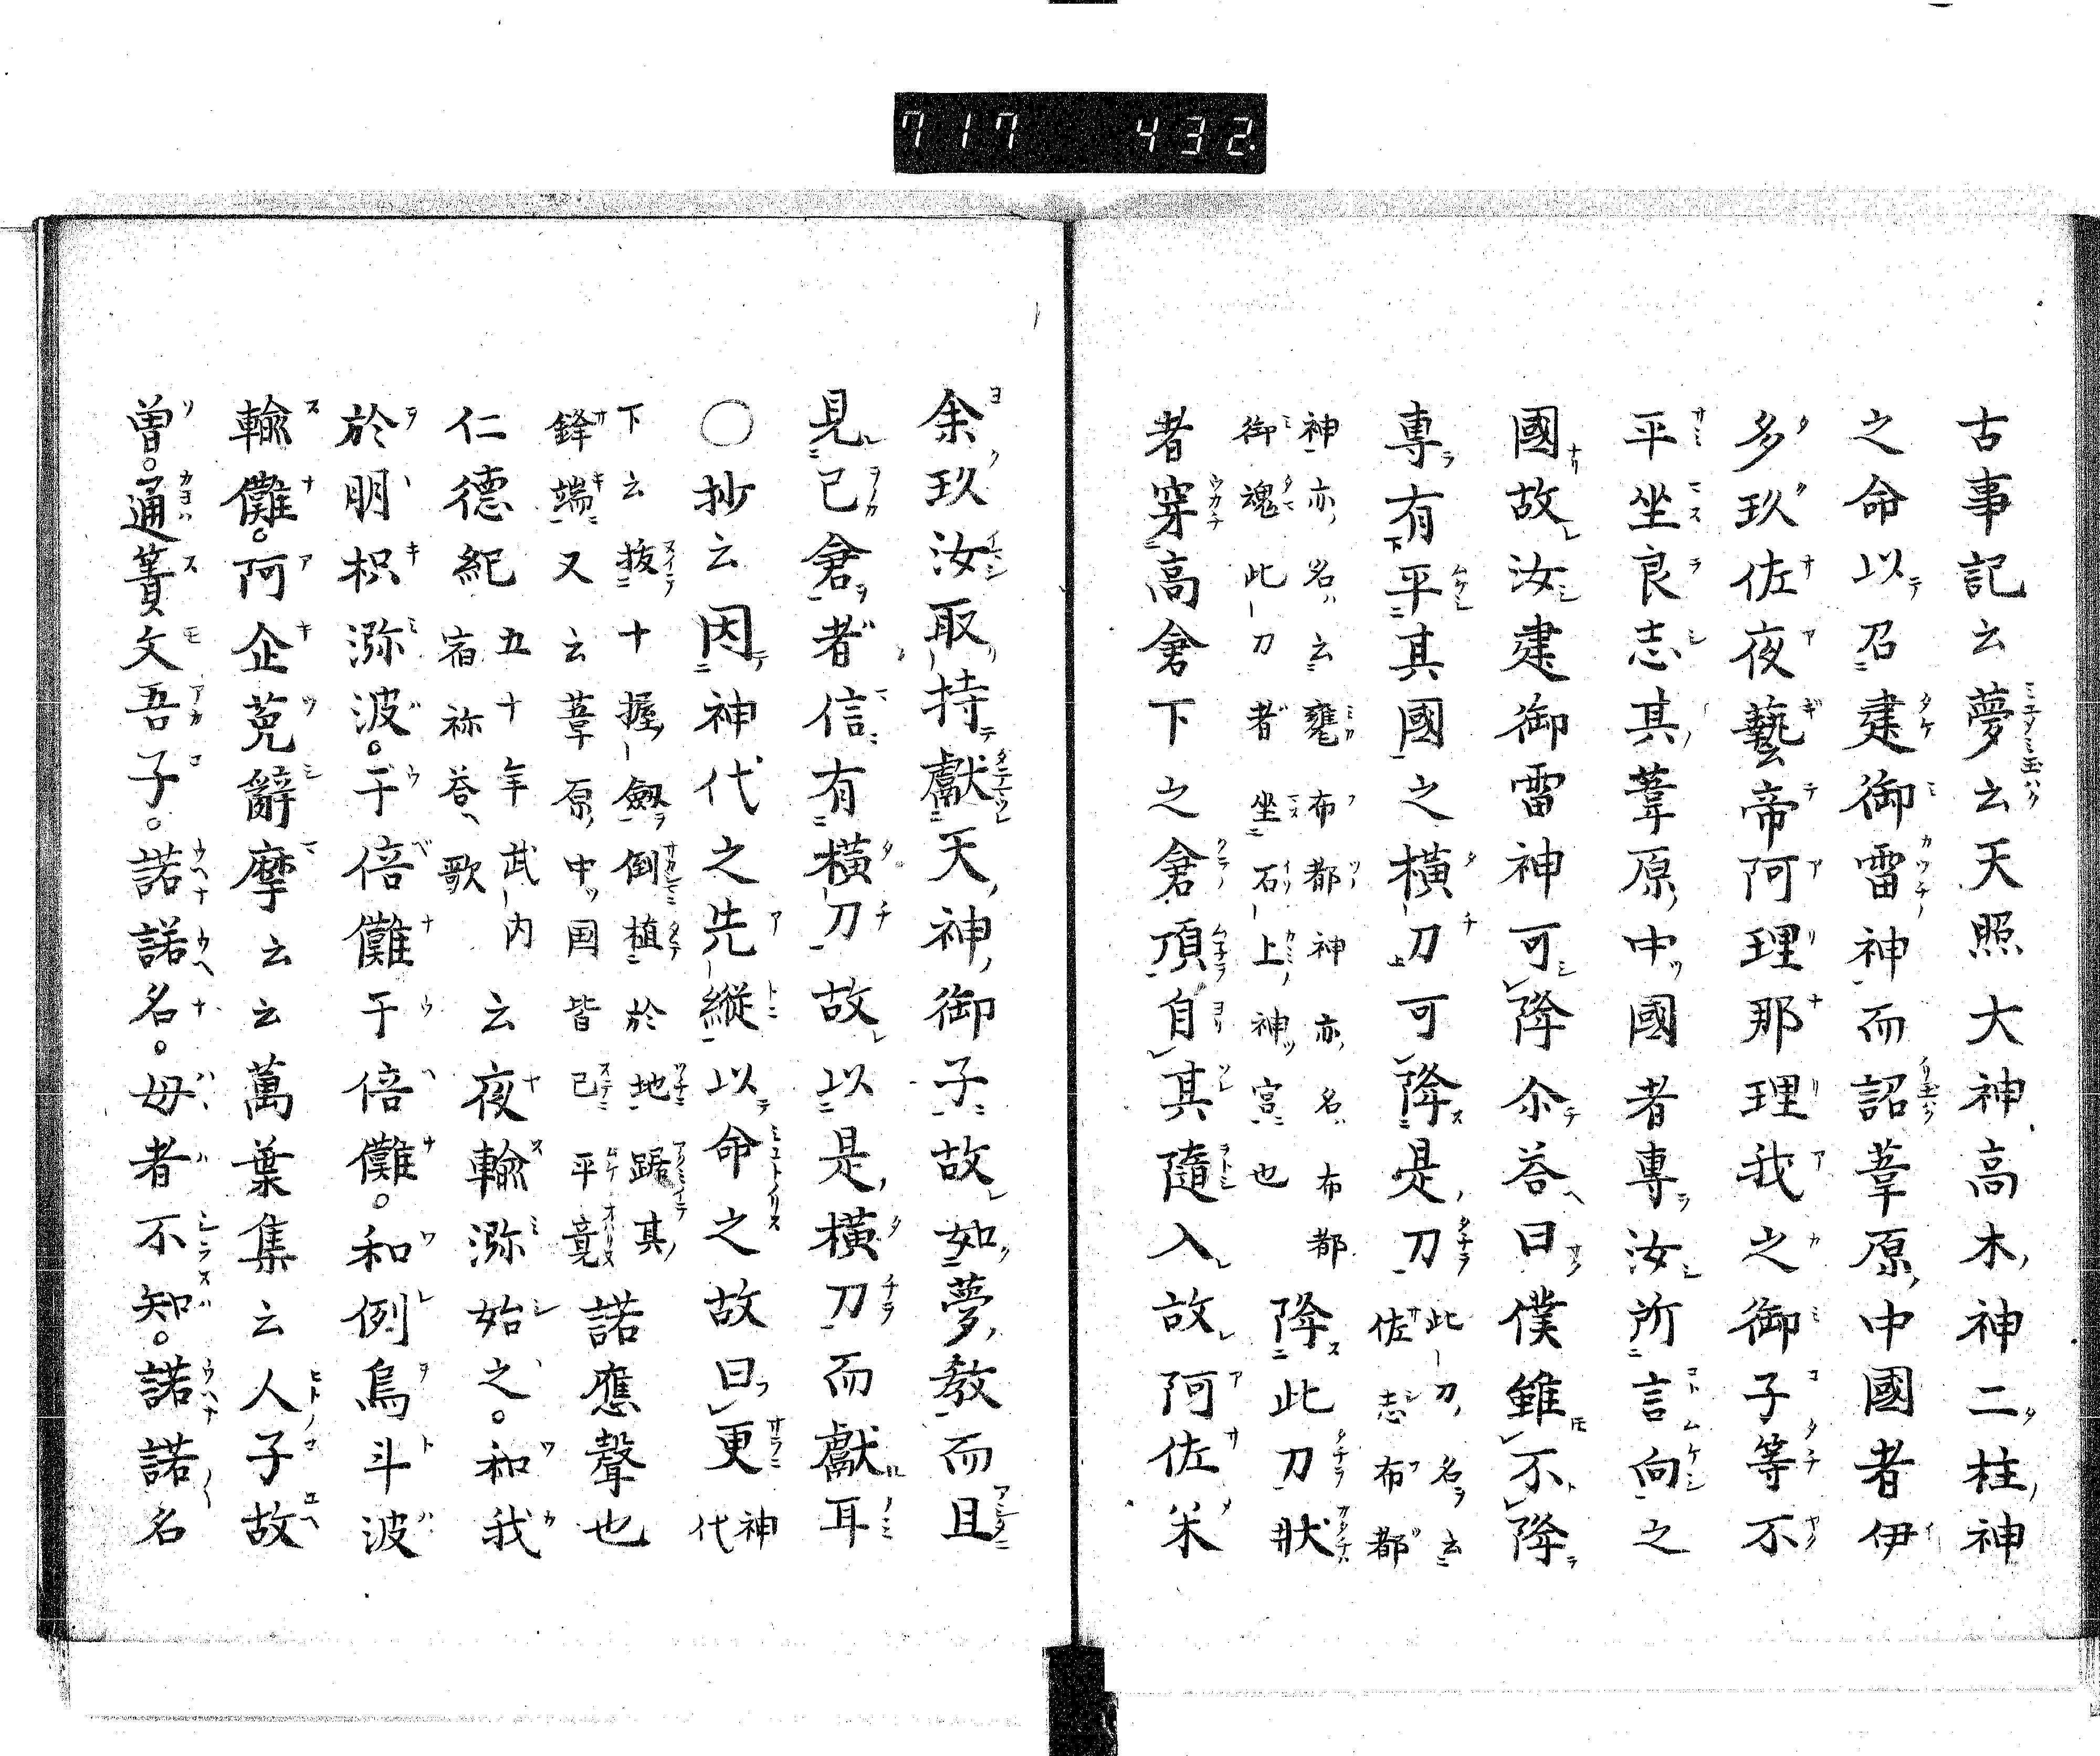 717 432
古事記云夢云天照大神高木神二柱神
之命以召建御雷神而詔葦原中國者伊
多玖佐夜藝帝阿理那理我之御子等不
平坐良志其葦原中國者專汝所言向之
國故汝建御雷神可降尒荅曰僕雖不降
專有平其國之橫刀可降是刀此刀名云
佐志布都
神亦名云甕布都神亦名布都
御魂此刀者坐石上神宮也
降此刀狀
者穿高倉下之倉頂自其隨入故阿佐米
余玖汝取持獻天神御子故如夢教而且
見已倉者信有橫刀故以是橫刀而獻耳
○抄云因神代之先縱以命之故曰更神
代
下云拔十握劔倒植於地踞其
鋒端又云葦原中国皆已平竟
諾應聲也
仁德紀五十年武内
宿祢荅歌
云夜輸瀰始之。和我
於朋枳瀰波。于倍儺于倍儺。和例烏斗波
輸儺。阿企菟辭摩云云萬葉集云人子故
曽。通簀文吾子。諾諾名。母者不知。諾諾名